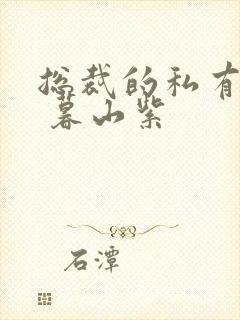 总裁的私有
暮山紫
石潭